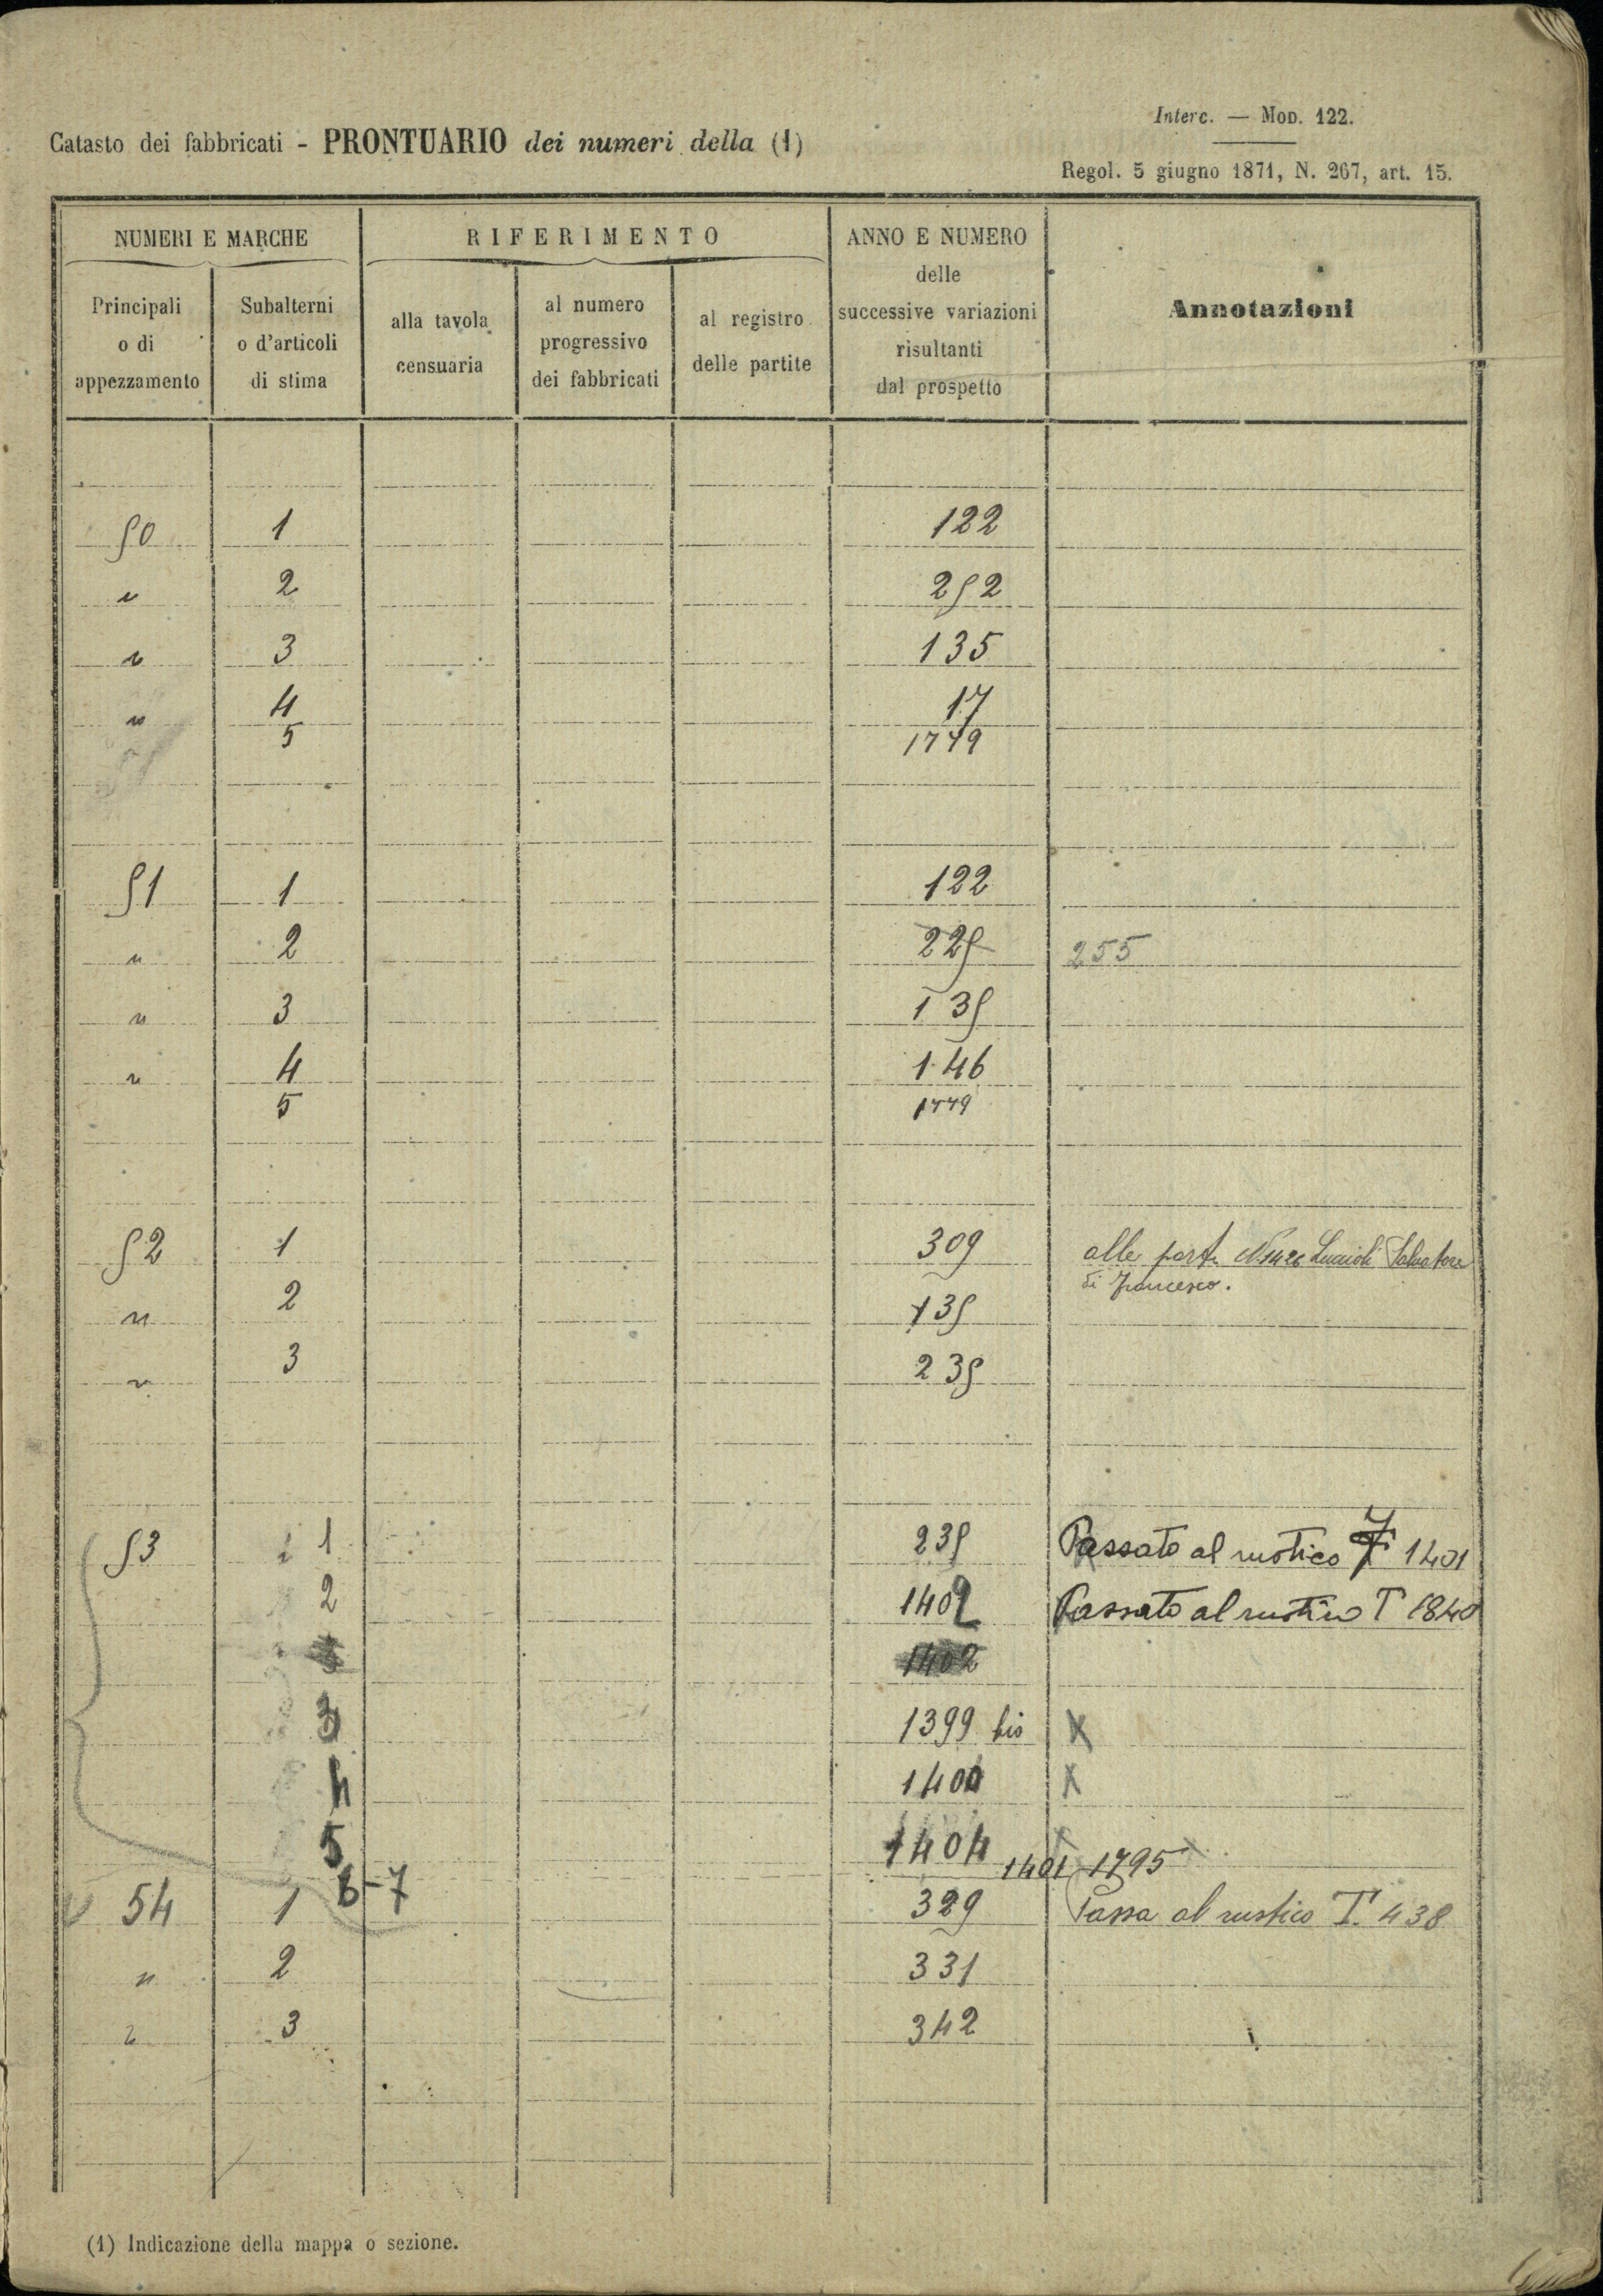 Interc. — MOD. 122.
Catasto dei fabbricati - PRONTUARIO dei numeri della (1)
Regol. 5 giugno 1871, N. 267, art. 15.
NUMERI E MARCHE
RIFERIMENTO
ANNO E NUMERO
delle
successive variazioni
risultanti
dal prospetto
Annotazioni
Principali
o di
appezzamento
Subalterni
o d'articoli
di stima
alla tavola
censuaria
al numero
progressivo
dei fabbricati
al registro
delle partite
50 1 122
" 2 252
" 3 135
" 4 17
5 1779
51 1 122
" 2 225 255
" 3 135
" 4 146
5 1779
52 1 309 alle part. N. 1426 Salvatore
di Francesco.
" 2 135
" 3 235
53 1 235 Passato al rustico T 1401
2 1402 Passato al rustico T 1840
1402
3 1399 bis X
4 1400 X
5 1404
1401 1795
6-7
54 1 329 Passa al rustico T. 438
" 2 331
" 3 342
(1) Indicazione della mappa o sezione.